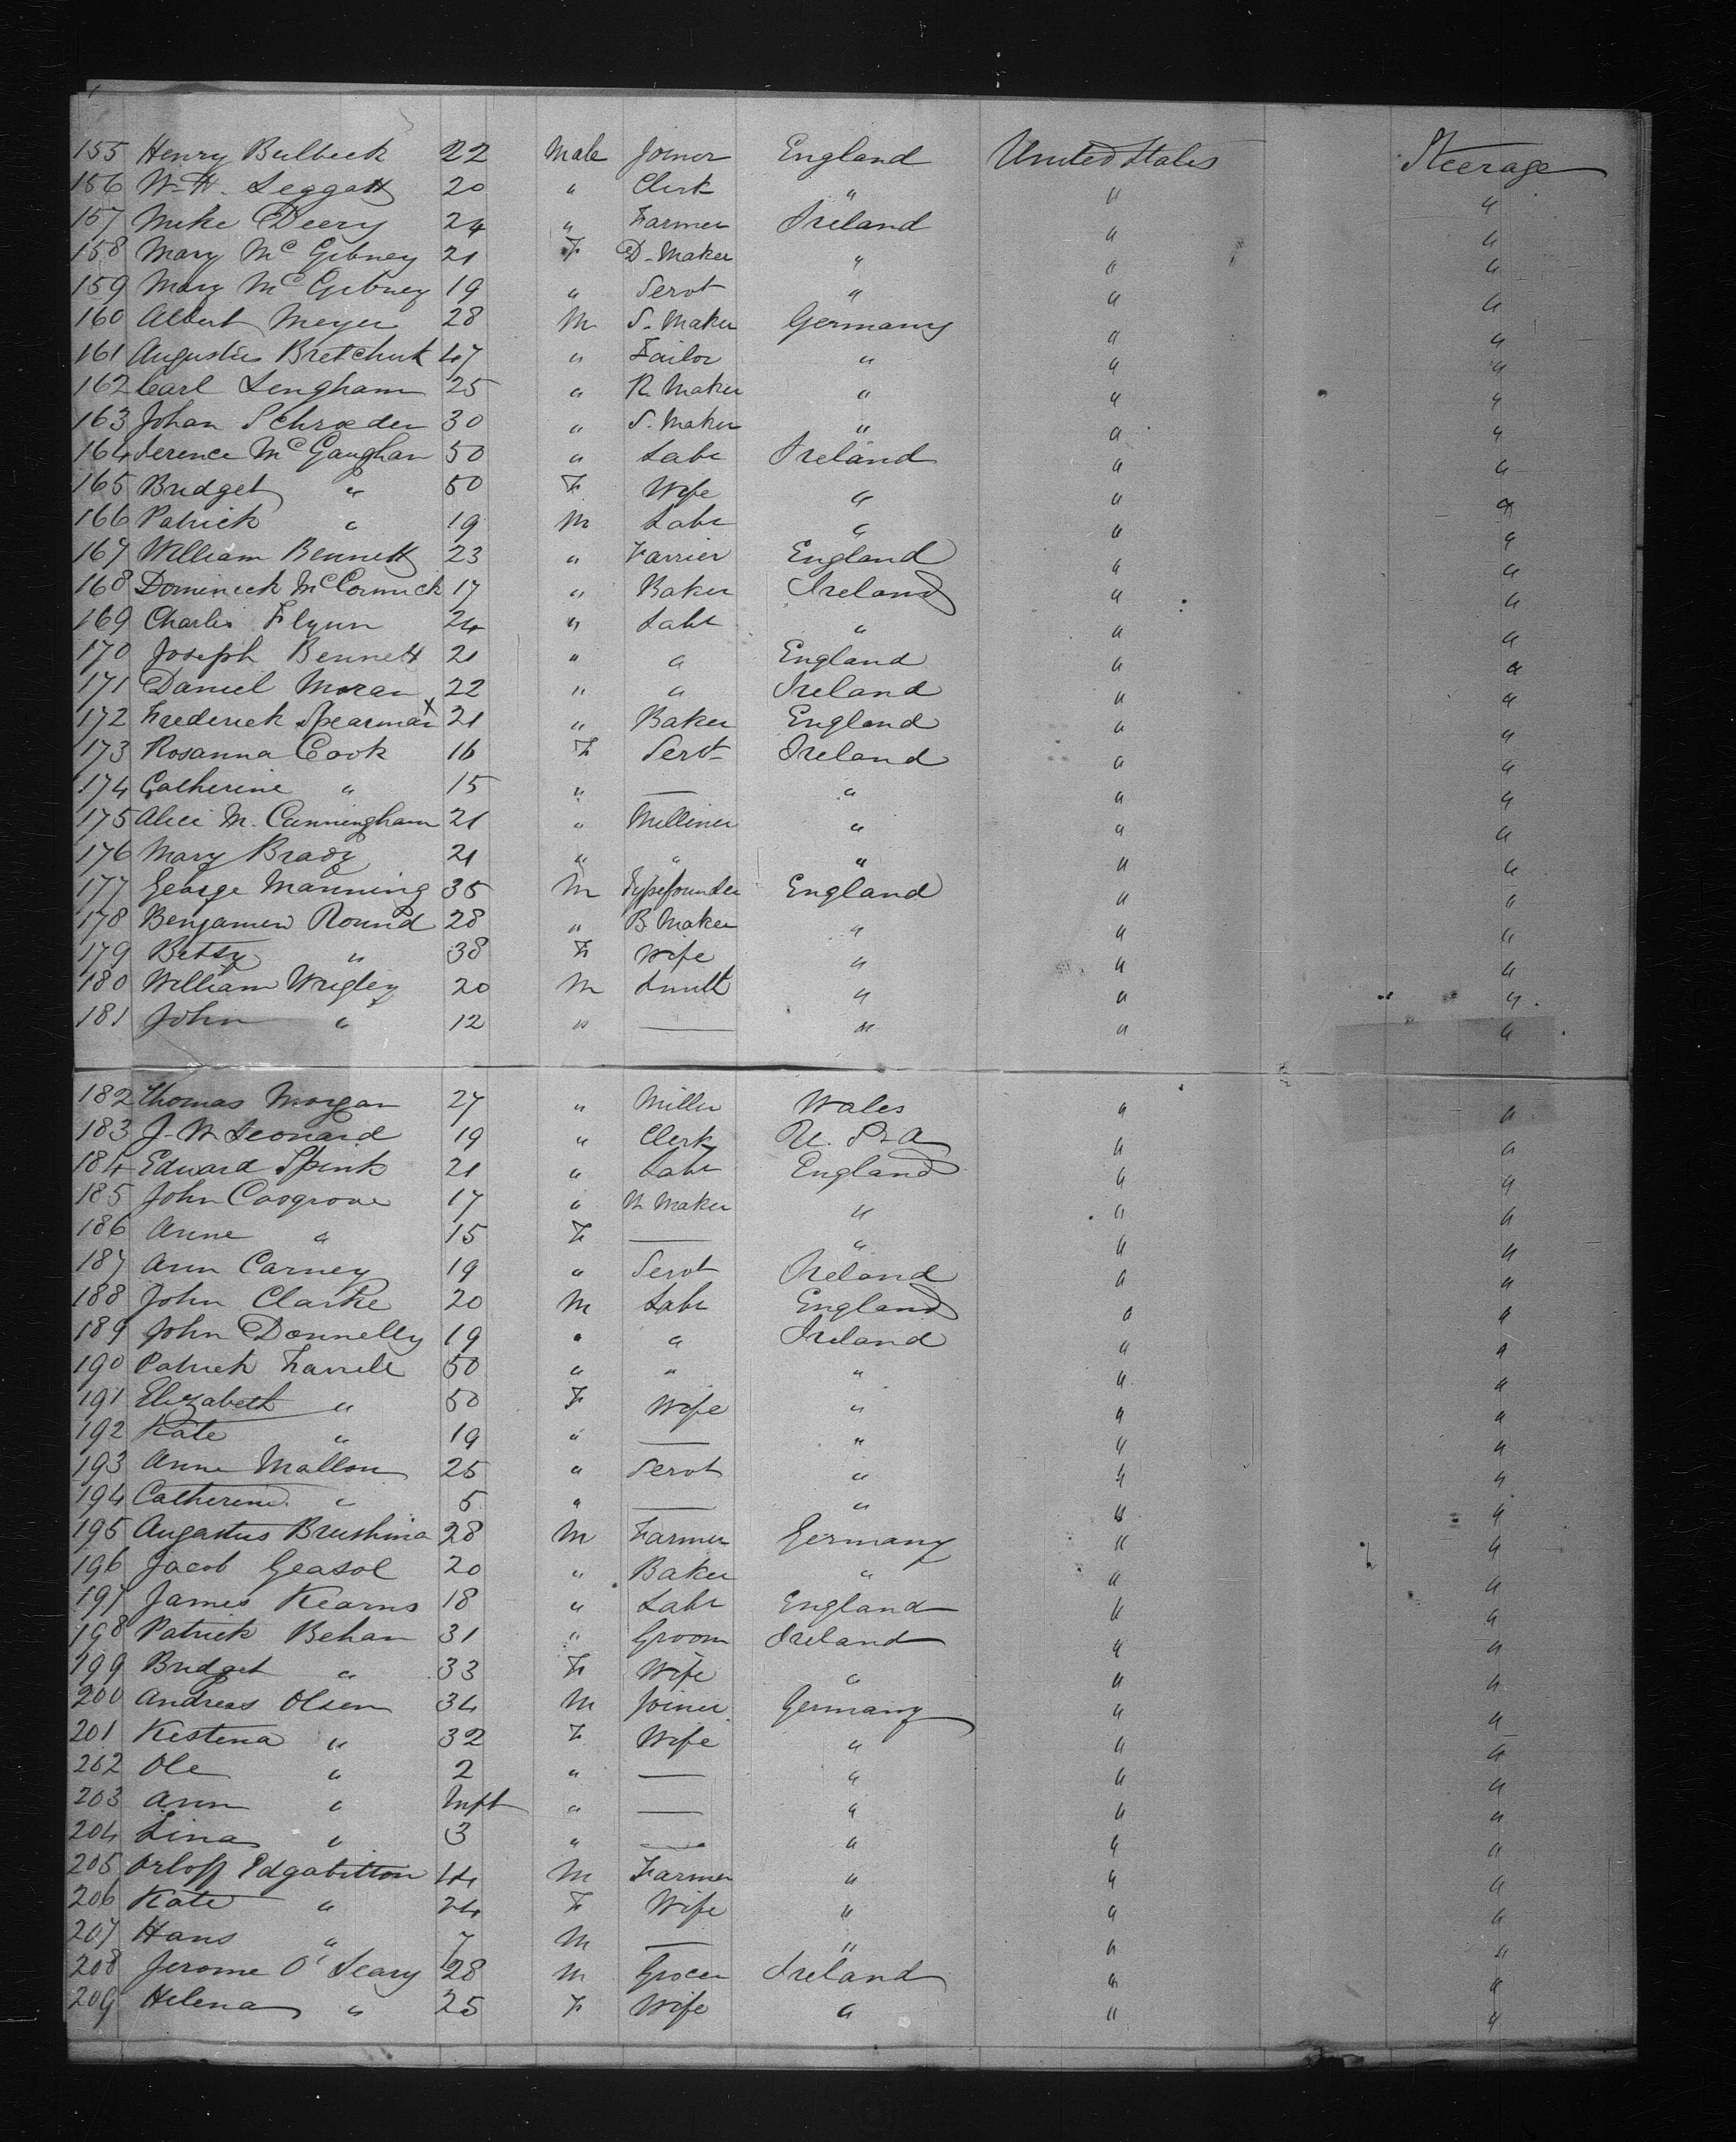 155 Henry Bulbeck 22 Male Joiner England United States Steerage
156 W. H. Leggatt 20 " Clerk " " "
157 Mike Deery 24 " Farmer Ireland " "
158 Mary McGibney 21 F D. Maker " " "
159 Mary McGibney 19 " Servt " " "
160 Albert Meyer 28 M S. Maker Germany " "
161 47 " Tailor " " "
162 Carl Lengham 25 " R. Maker " " "
163 Johan Schroeder 30 " S. Maker " " "
164 Terence McGaughan 50 " Labr Ireland " "
165 Bridget " 50 F. Wife " " "
166 Patrick " 19 M Labr " " "
167 William Bennett 23 " Farrier England " "
168 Dominick McCormick 17 " Baker Ireland " "
169 Charles Flynn 24 " Labr " " "
170 Joseph Bennett 21 " " England " "
171 Daniel Moran 22 " " Ireland " "
172 Frederick Spearman x 21 " Baker England " "
173 Rosanna Cook 16 F Servt Ireland " "
174 Catherine " 15 " — " " "
175 Alice M. Cunningham 21 " Milliner " " "
176 Mary Brady 21 " " " " "
177 George Manning 35 M Typefounder England " "
178 Benjamin Round 28 " B Maker " " "
179 Betsy " 38 F Wife " " "
180 William Wrigley 20 M Smith " " "
181 John " 12 " — " " "
182 Thomas Morgan 27 " Miller Wales " "
183 J. W Leonard 19 " Clerk U. S. A " "
184 Edward Spink 21 " Labr England " "
185 John Cosgrove 17 " Maker " " "
186 Anne " 15 F — " " "
187 Ann Carney 19 " Servt Ireland " "
188 John Clarke 20 M Labr England " "
189 John Donnelly 19 " " Ireland " "
190 Patrick Farrell 50 " " " " "
191 Elizabeth " 50 F Wife " " "
192 Kate " 19 " — " " "
193 Anne Mallon 25 " Servt " " "
194 Catherine " 5 " — " " "
195 Augustus 28 M Farmer Germany " "
196 Jacob Geasol 20 " Baker " " "
197 James Kearns 18 " Labr England " "
198 Patrick Behan 31 " Groom Ireland " "
199 Bridget " 33 F Wife " " "
200 Andreas Olsen 34 M Joiner Germany " "
201 Kestena " 32 F Wife " " "
202 Ole " 2 " — " " "
203 Ann " Inft " — " " "
204 Lina " 3 " — " " "
205 Orloff 44 M Farmer " " "
206 Kate " 24 F Wife " " "
207 Hans " 7 M — " " "
208 Jerome O'Leary 28 M Grocer Ireland " "
209 Helena " 25 F Wife " " "